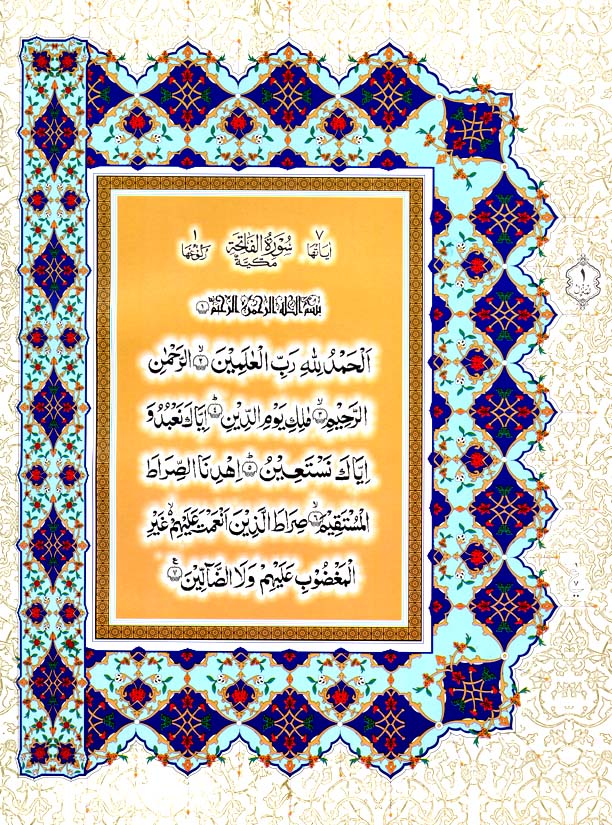 اٰيَاتُهَا ٧ سُوْرَةُ الْفَاتِحَةِ مَكِّيَّةٌ رُكُوْعُهَا ١
بِسْمِ اللهِ الرَّحْمٰنِ الرَّحِيْمِ ١
اَلْحَمْدُ لِلّٰهِ رَبِّ الْعٰلَمِيْنَ ۙ ٢ الرَّحْمٰنِ
الرَّحِيْمِ ۙ ٣ مٰلِكِ يَوْمِ الدِّيْنِ ؕ ٤ اِيَّاكَ نَعْبُدُ وَ
اِيَّاكَ نَسْتَعِيْنُ ؕ ٥ اِهْدِنَا الصِّرَاطَ
الْمُسْتَقِيْمَ ۙ ٦ صِرَاطَ الَّذِيْنَ اَنْعَمْتَ عَلَيْهِمْ ۙ غَيْرِ
الْمَغْضُوْبِ عَلَيْهِمْ وَلَا الضَّآلِّيْنَ ۧ ٧
١